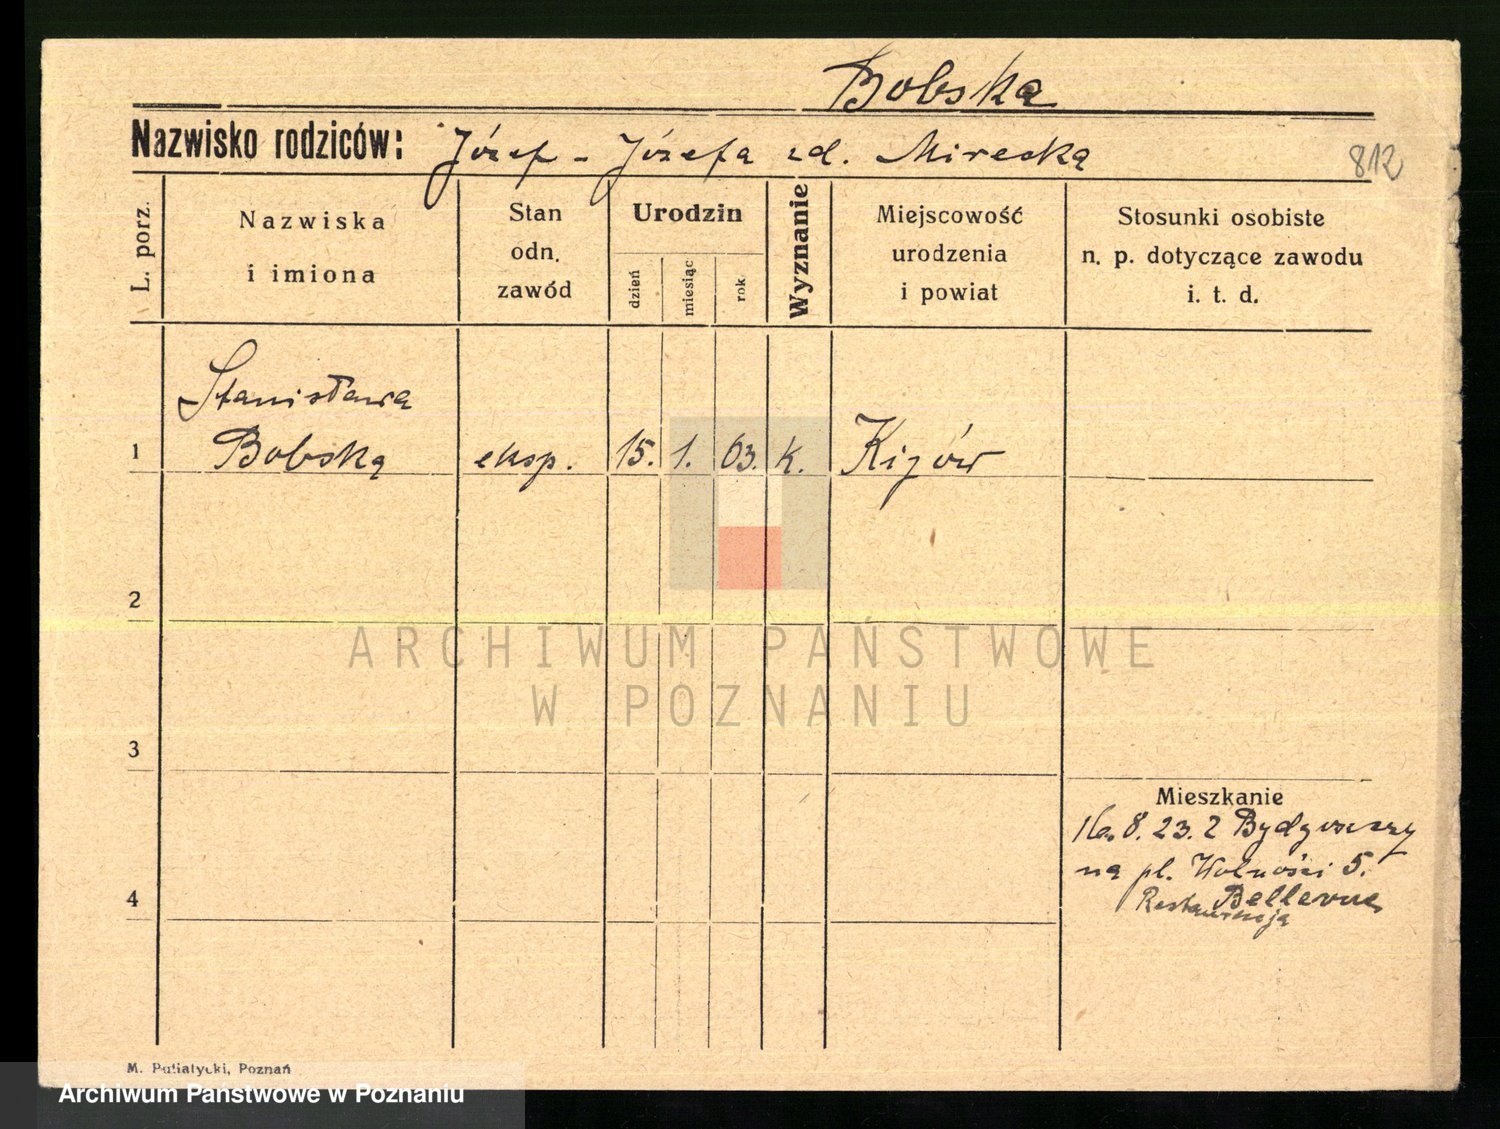 Bobska
Nazwisko rodziców: Józef - Józefa zd. Mirecka
812
L. porz.
Nazwiska
i imiona
Stan
odn.
zawód
Urodzin
dzień
miesiąc
rok
Wyznanie
Miejscowość
urodzenia
i powiat
Stosunki osobiste
n. p. dotyczące zawodu
i. t. d.
Stanisława
1 Bobska eksp. 15. 1. 03. k. Kijów
2
ARCHIWUM PAŃSTWOWE
W POZNANIU
3
Mieszkanie
16. 8. 23. z Bydgoszczy
na pl. Wolności 5.
4
Restauracja Bellevue
M. Putiatycki, Poznań
Archiwum Państwowe w Poznaniu